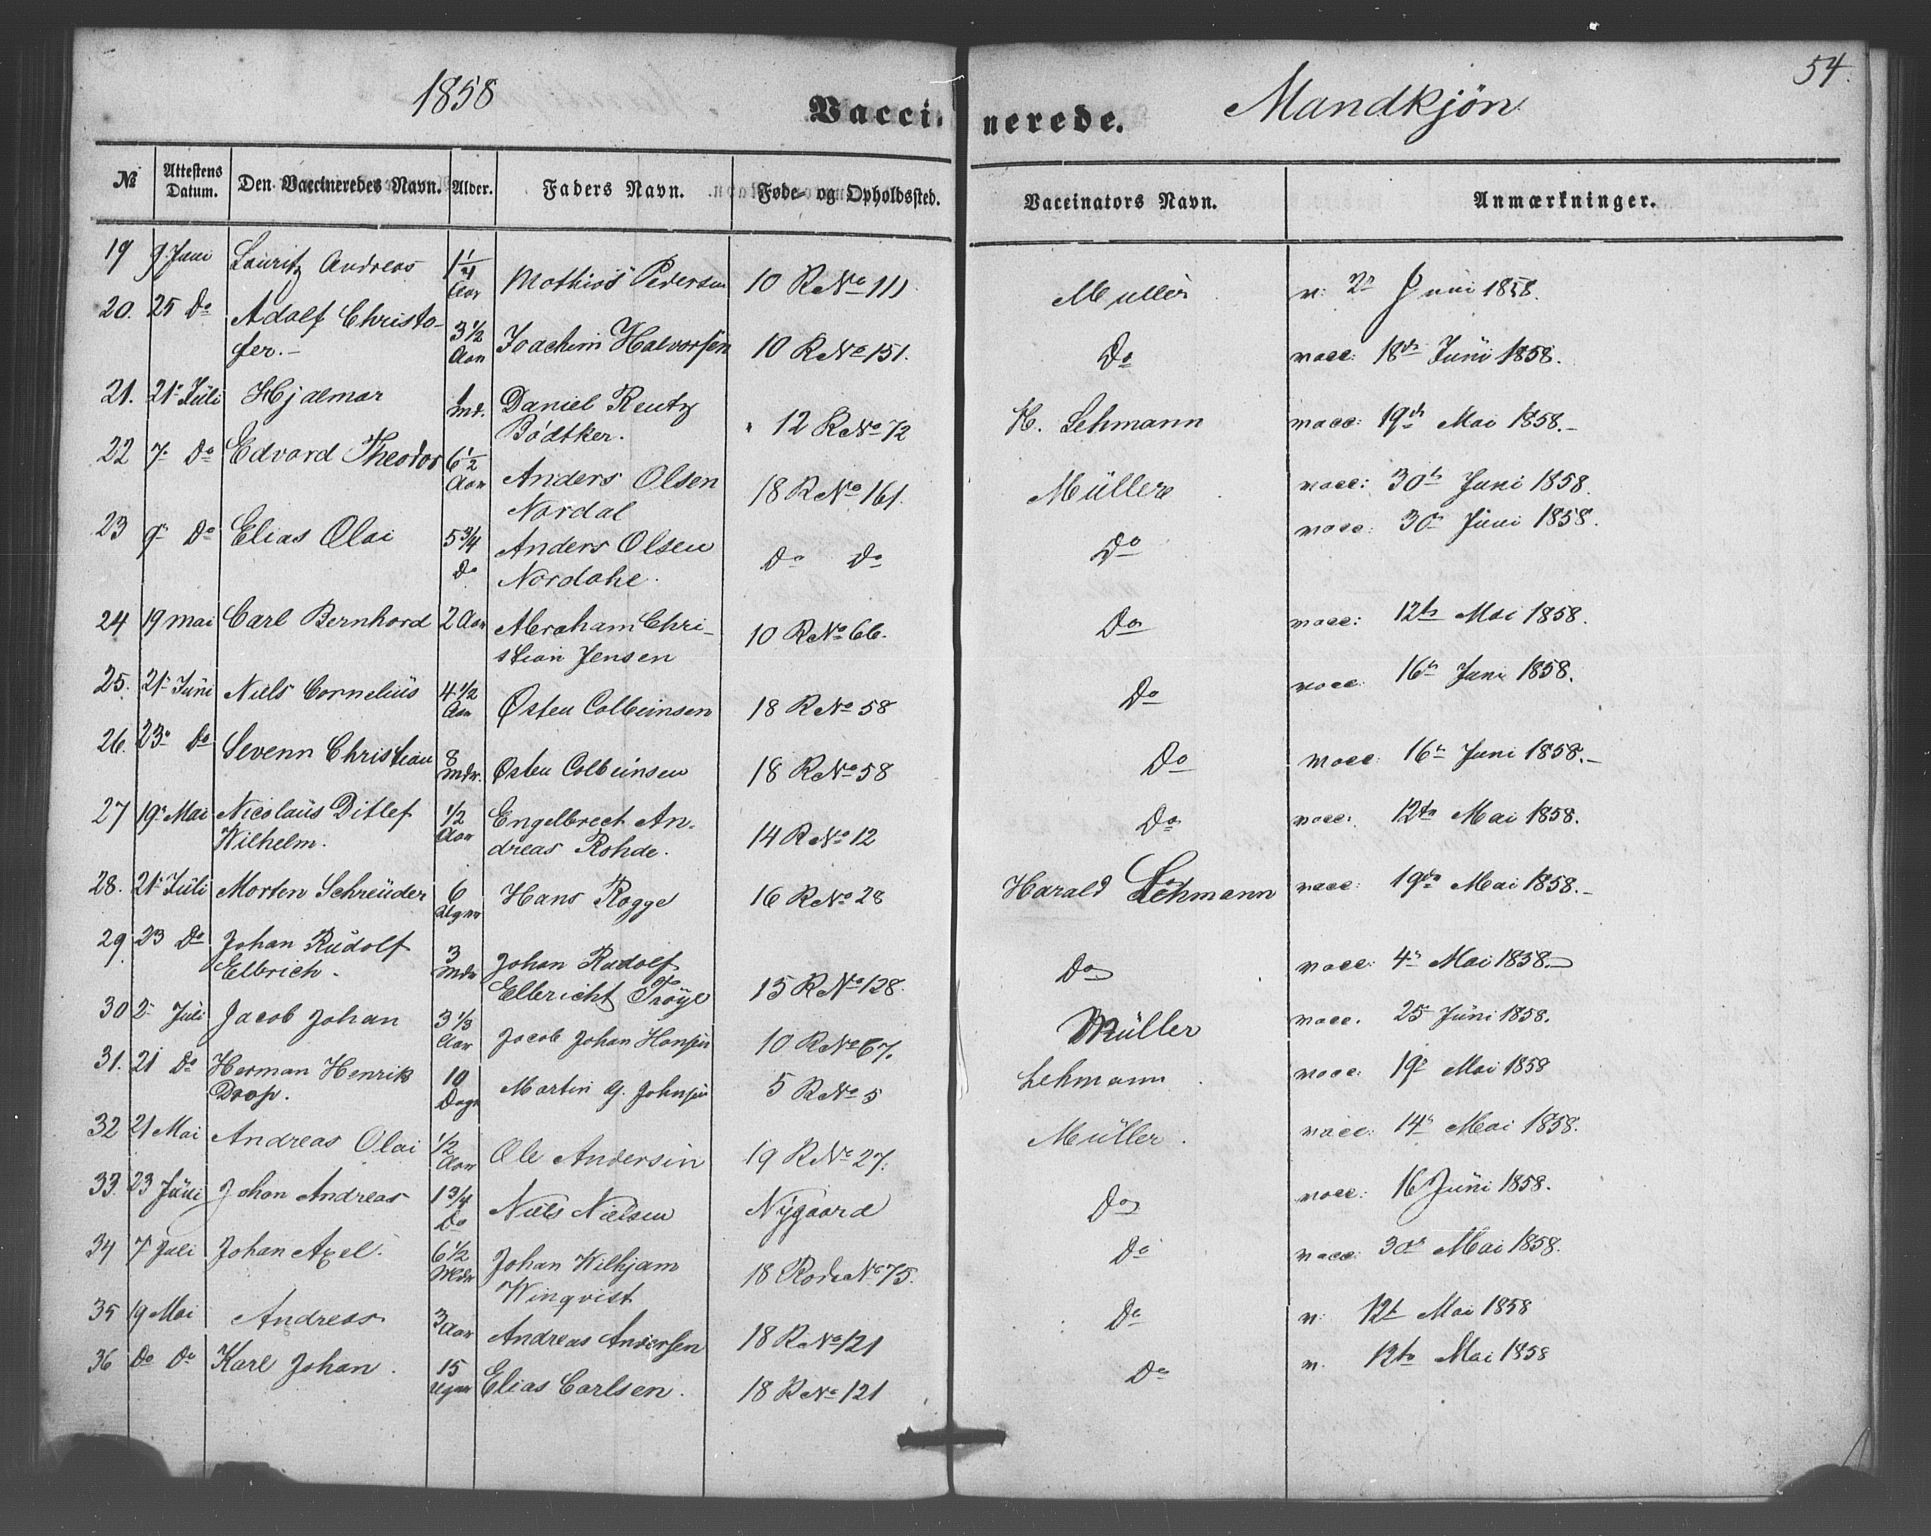 1858 Vaccinerede. Mandkjøn 54.
№ Attestens Datum. Den Vaccineredes Navn. Alder. Faders Navn. Føde- og Opholdssted. Vaccinators Navn. Anmærkninger.
19 9 Juni Lauritz Andreas 1 1/4 Aar Mathias Pedersen 10 R No 111 Muller v: 2n Juni 1858.
20. 25 Do Adolf Christo-
fer. 3 1/2 Aar Joachim Halvorsen 10 R No 151. Do vacc: 18de Jüni 1858.
21. 21 Jüli Hjalmar 1 Md. Daniel Reutz
Bødtker. 12 R No 72 H. Lehmann vacc: 19de Mai 1858.
22 7 Do Edvard Theodor 6 1/2 Aar Anders Olsen
Nordal 18 R No 161. Müller vacc: 30te Juni 1858.
23 9 Do Elias Olai 5 3/4 Do Anders Olsen
Nordahe. Do Do Do vacc: 30te Jüni 1858.
24 19 Mai Carl Bernhard 2 Aar Abraham Chri-
stian Jensen 10 R No 66. Do vacc: 12te Mai 1858.
25. 21 Jüni Niels Cornelius 4 1/2 Aar Østen Colbeinsen 18 R No 58 Do vacc: 16n Juni 1858.
26. 23 Do Sevenn Christian 8 Mdr. Østen Colbeinsen 18 R No 58 Do vacc: 16n Juni 1858.
27 19 Mai Nicolaüs Ditlef
Wilhelm. 1/2 Aar Engelbrect An-
dreas Rohde. 14 R No 12 Do vacc. 12te Mai 1858.
28. 21 Jüli Morten Schreüder 6 Ugner Hans Rogge 16 R No 28 Harald Lehmann vacc: 19de Mai 1858.
29. 23 Do Johan Rüdolf
Elbrich. 3 Mdr Johan Rudolf
Elbricht Trøye 15 R No 128. Do vacc: 4n Mai 1858.
30 2 Jüli Jacob Johan 3 1/3 Aar Jacob Johan Hansen 10 R No 67. Müller vacc. 25 Jüni 1858.
31. 21 Do Herman Henrik
Droop. 10 Dage Martin G. Johnsen 5 R No 5 Lehmann vacc: 19 Mai 1858
32 21 Mai Andreas Olai 1/2 Aar Ole Andersen 19 R No 27. Müller vacc: 14n Mai 1858.
33. 23 Jüni Johan Andreas 1 3/4 Do Niels Nielsen Nÿgaard Do vacc: 16 Jüni 1858.
34 7 Juli Johan Axel. 6 1/2 Mdr Johan Wilhjam
Winqvist 18 Rode No 75. Do vacc: 30n Mai 1858.
35 19 Mai Andreas 3 Aar Andreas Andersen 18 R No 121 Do v: 12t Mai 1858
36 Do Do Karl Johan. 15 Ugner Elias Carlsen. 18 R No 121 Do v. 12te Mai 1858